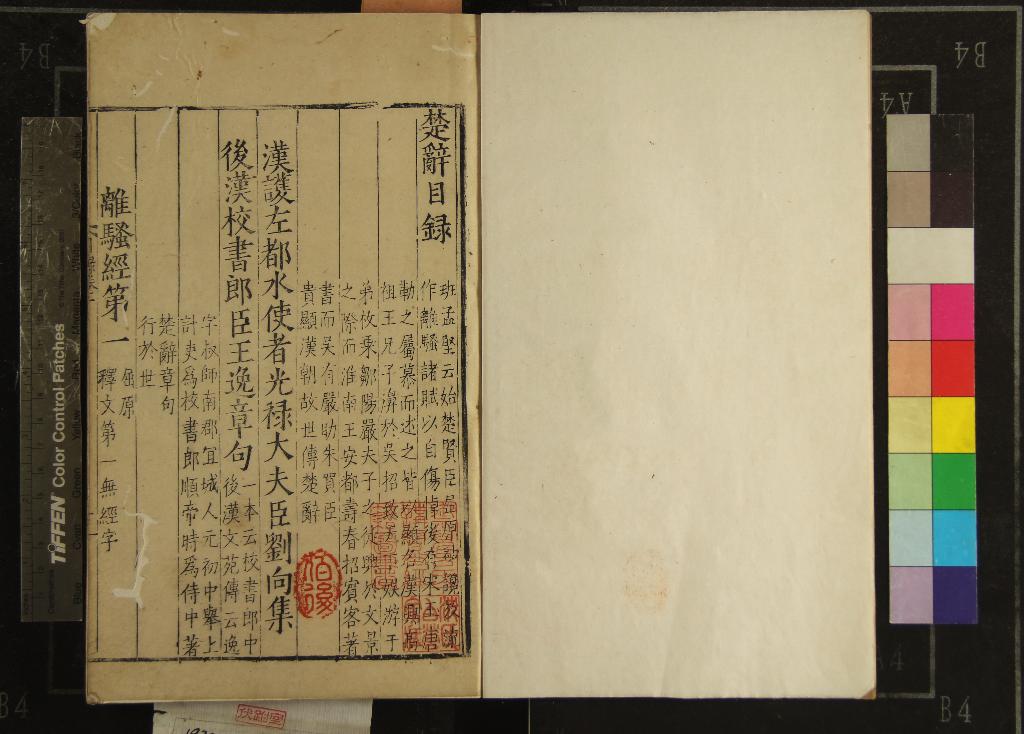 楚辭目録
班孟堅云始楚賢臣屈原被讒放流
作離騷諸賦以自傷悼後有宋玉唐
勒之屬慕而述之皆以顯名漢興高
祖王兄子濞於吳招致天下娛游子
弟枚乗鄒陽嚴夫子之徒興於文景
之際而淮南王安都壽春招賓客著
書而吳有嚴助朱買臣
貴顯漢朝故世傳楚辭
漢護左都水使者光禄大夫臣劉向集
後漢校書郎臣王逸章句
一本云校書郎中
後漢文苑傳云逸
字叔師南郡宜城人元初中舉上
計吏爲校書郎順帝時爲侍中著
楚辭章句
行於世
離騷經第一
屈原
釋文第一無經字
TIFFEN Color Control Patches
B4
B4
A4
B4
B4